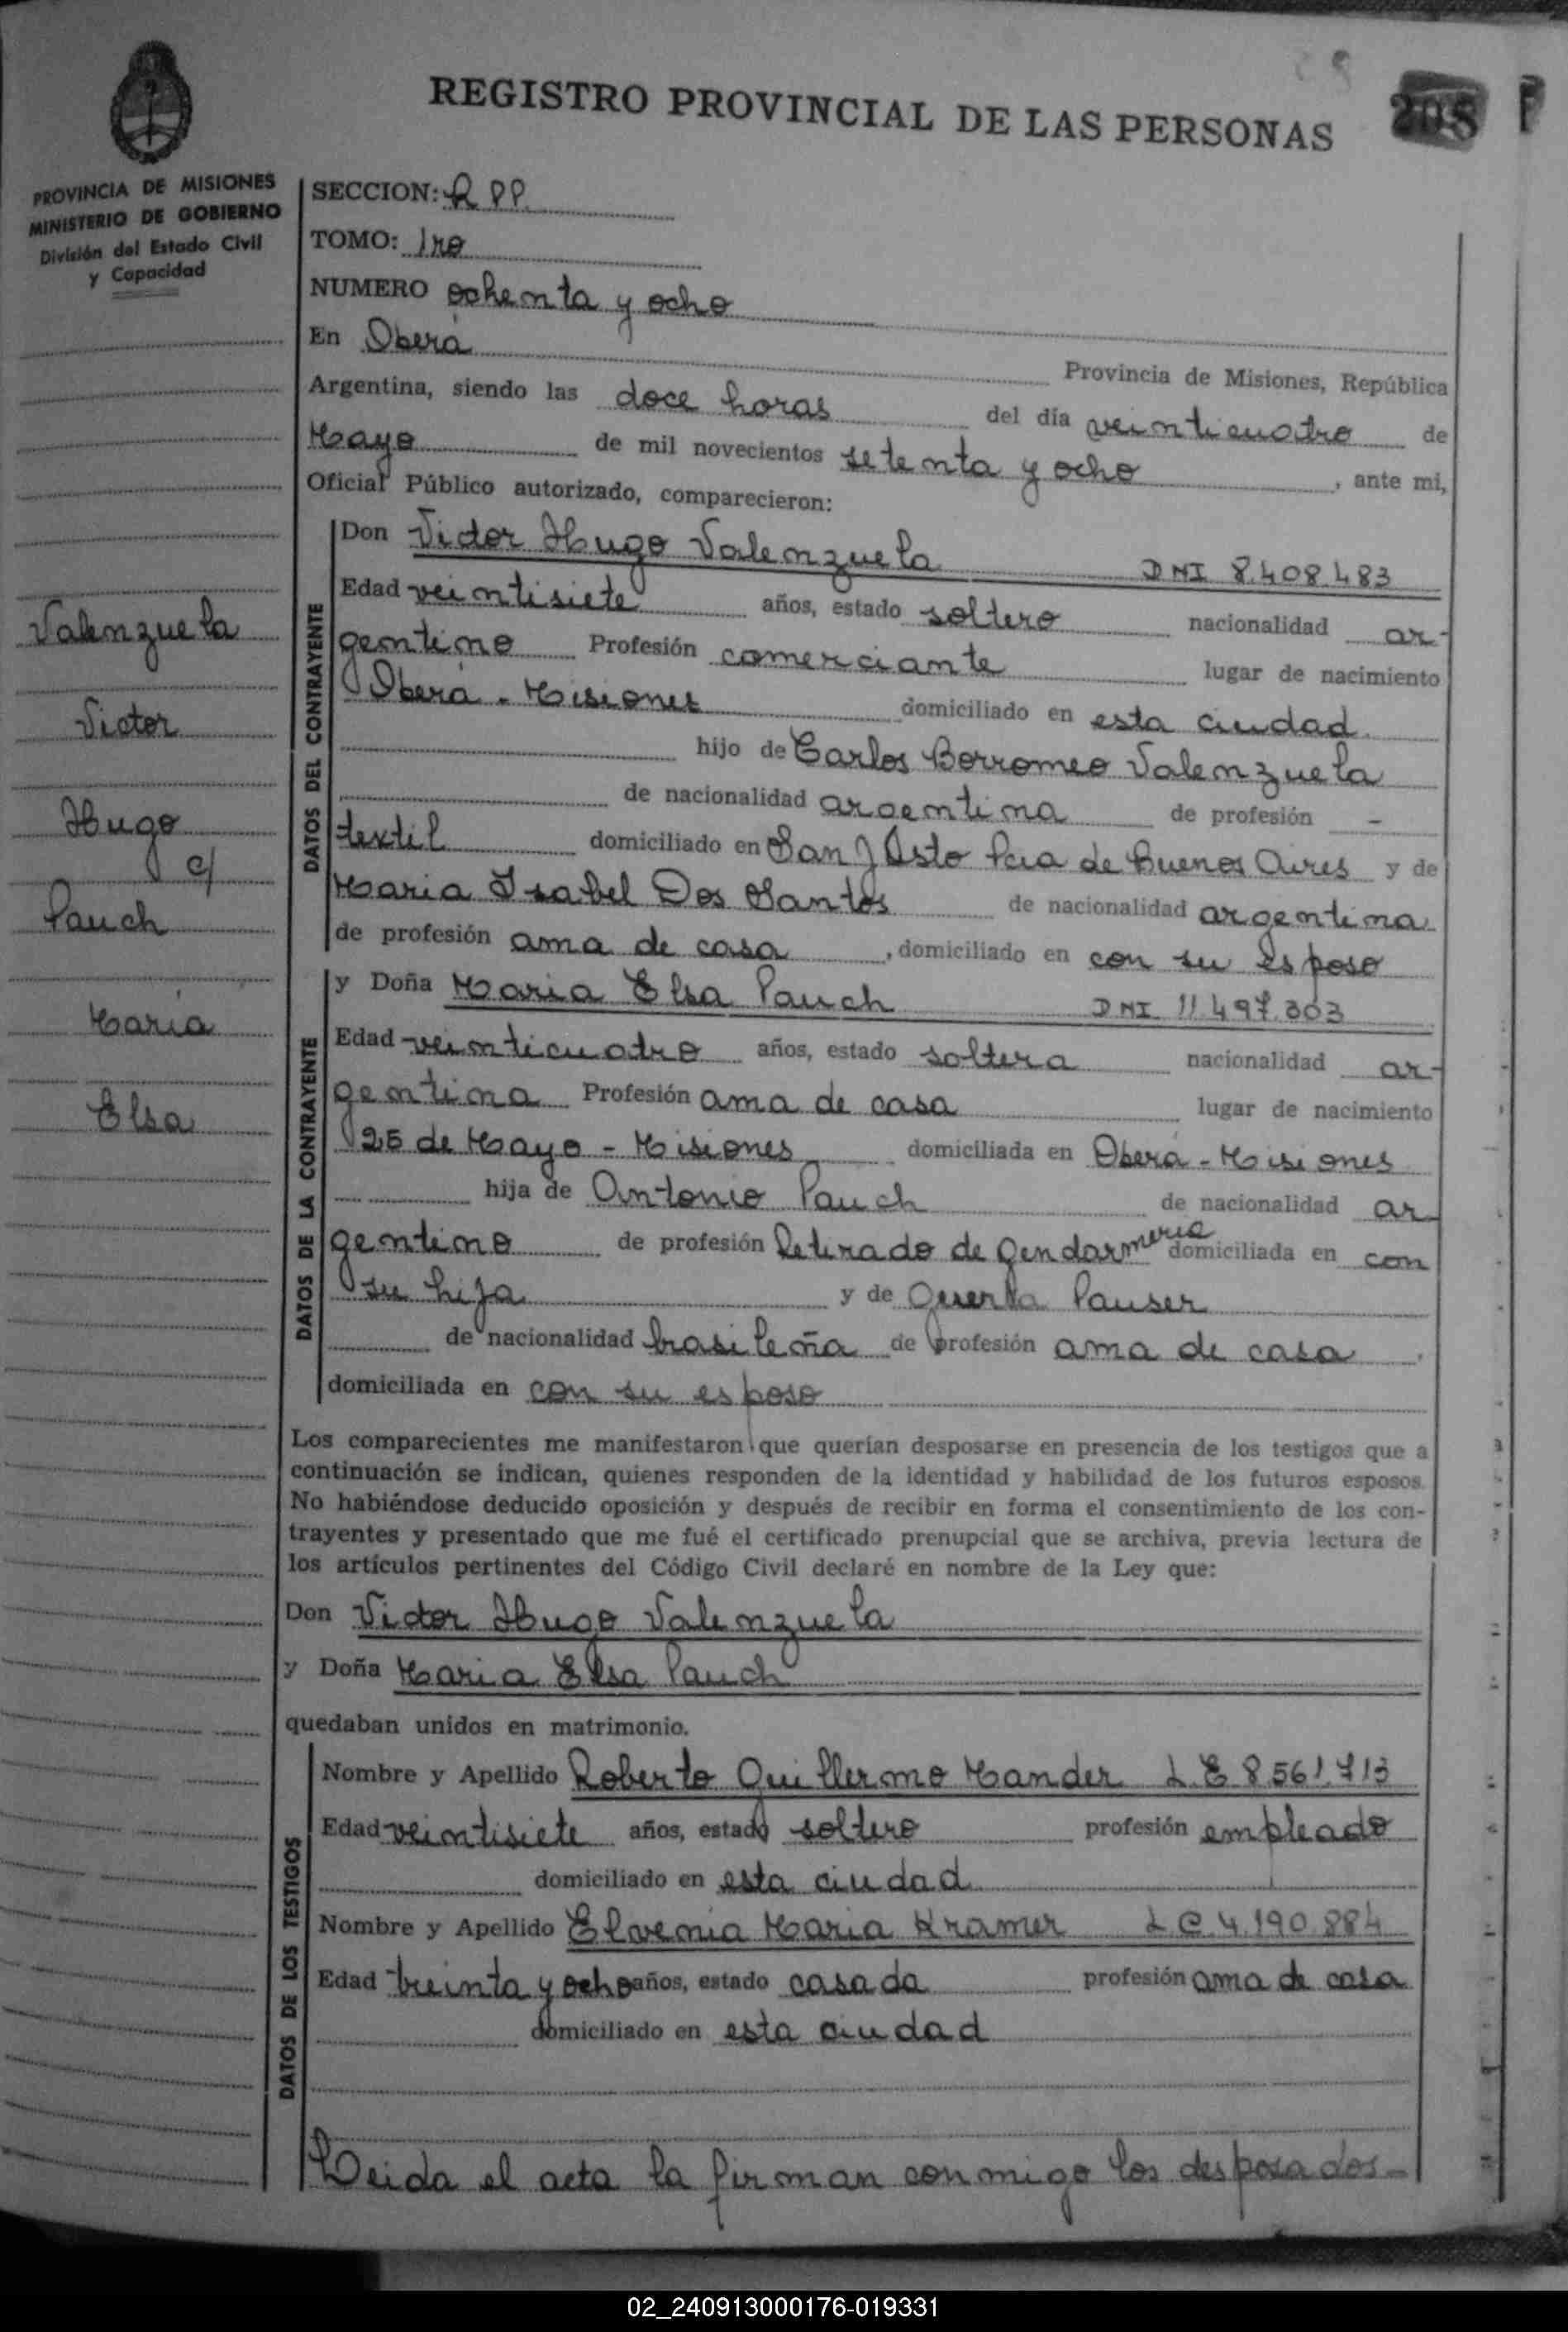 REGISTRO PROVINCIAL DE LAS PERSONAS
208
PROVINCIA DE MISIONES
MINISTERIO DE GOBIERNO
División del Estado Civil
y Capacidad
Valenzuela
Victor
Hugo
c/
Pauch
Maria
Elsa
SECCION: R P P.
TOMO: 1ro
NUMERO ochenta y ocho
En Oberá Provincia de Misiones, República
Argentina, siendo las doce horas del día veinticuatro de
Mayo de mil novecientos setenta y ocho, ante mi,
Oficial Público autorizado, comparecieron:
DATOS DEL CONTRAYENTE
Don Victor Hugo Valenzuela DNI 8.408.483
Edad veintisiete años, estado soltero nacionalidad ar-
gentino Profesión comerciante lugar de nacimiento
Oberá - Misiones domiciliado en esta ciudad.
hijo de Carlos Borromeo Valenzuela
de nacionalidad argentina de profesión -
textil domiciliado en San J Asto Pcia de Buenos Aires y de
Maria Isabel Dos Santos de nacionalidad argentina
de profesión ama de casa, domiciliado en con su esposo
DATOS DE LA CONTRAYENTE
y Doña Maria Elsa Pauch DNI 11.497.303
Edad veinticuatro años, estado soltera nacionalidad ar-
gentina Profesión ama de casa lugar de nacimiento
25 de Mayo - Misiones domiciliada en Oberá - Misiones
hija de Antonio Pauch de nacionalidad ar-
gentino de profesión Retirado de Gendarmeria domiciliada en con
su hija y de Pauser
de nacionalidad brasileña de profesión ama de casa,
domiciliada en con su esposo
Los comparecientes me manifestaron que querían desposarse en presencia de los testigos que a
continuación se indican, quienes responden de la identidad y habilidad de los futuros esposos.
No habiéndose deducido oposición y después de recibir en forma el consentimiento de los con-
trayentes y presentado que me fué el certificado prenupcial que se archiva, previa lectura de
los artículos pertinentes del Código Civil declaré en nombre de la Ley que:
Don Victor Hugo Valenzuela
y Doña Maria Elsa Pauch
quedaban unidos en matrimonio.
DATOS DE LOS TESTIGOS
Nombre y Apellido Roberto Guillermo Mander L.E 8.561.713
Edad veintisiete años, estado soltero profesión empleado
domiciliado en esta ciudad
Nombre y Apellido Elvenia Maria Kramer L.C. 4.190.884
Edad treinta y ocho años, estado casada profesión ama de casa
domiciliado en esta ciudad
Leida el acta la firman conmigo los desposados-
02_240913000176-019331